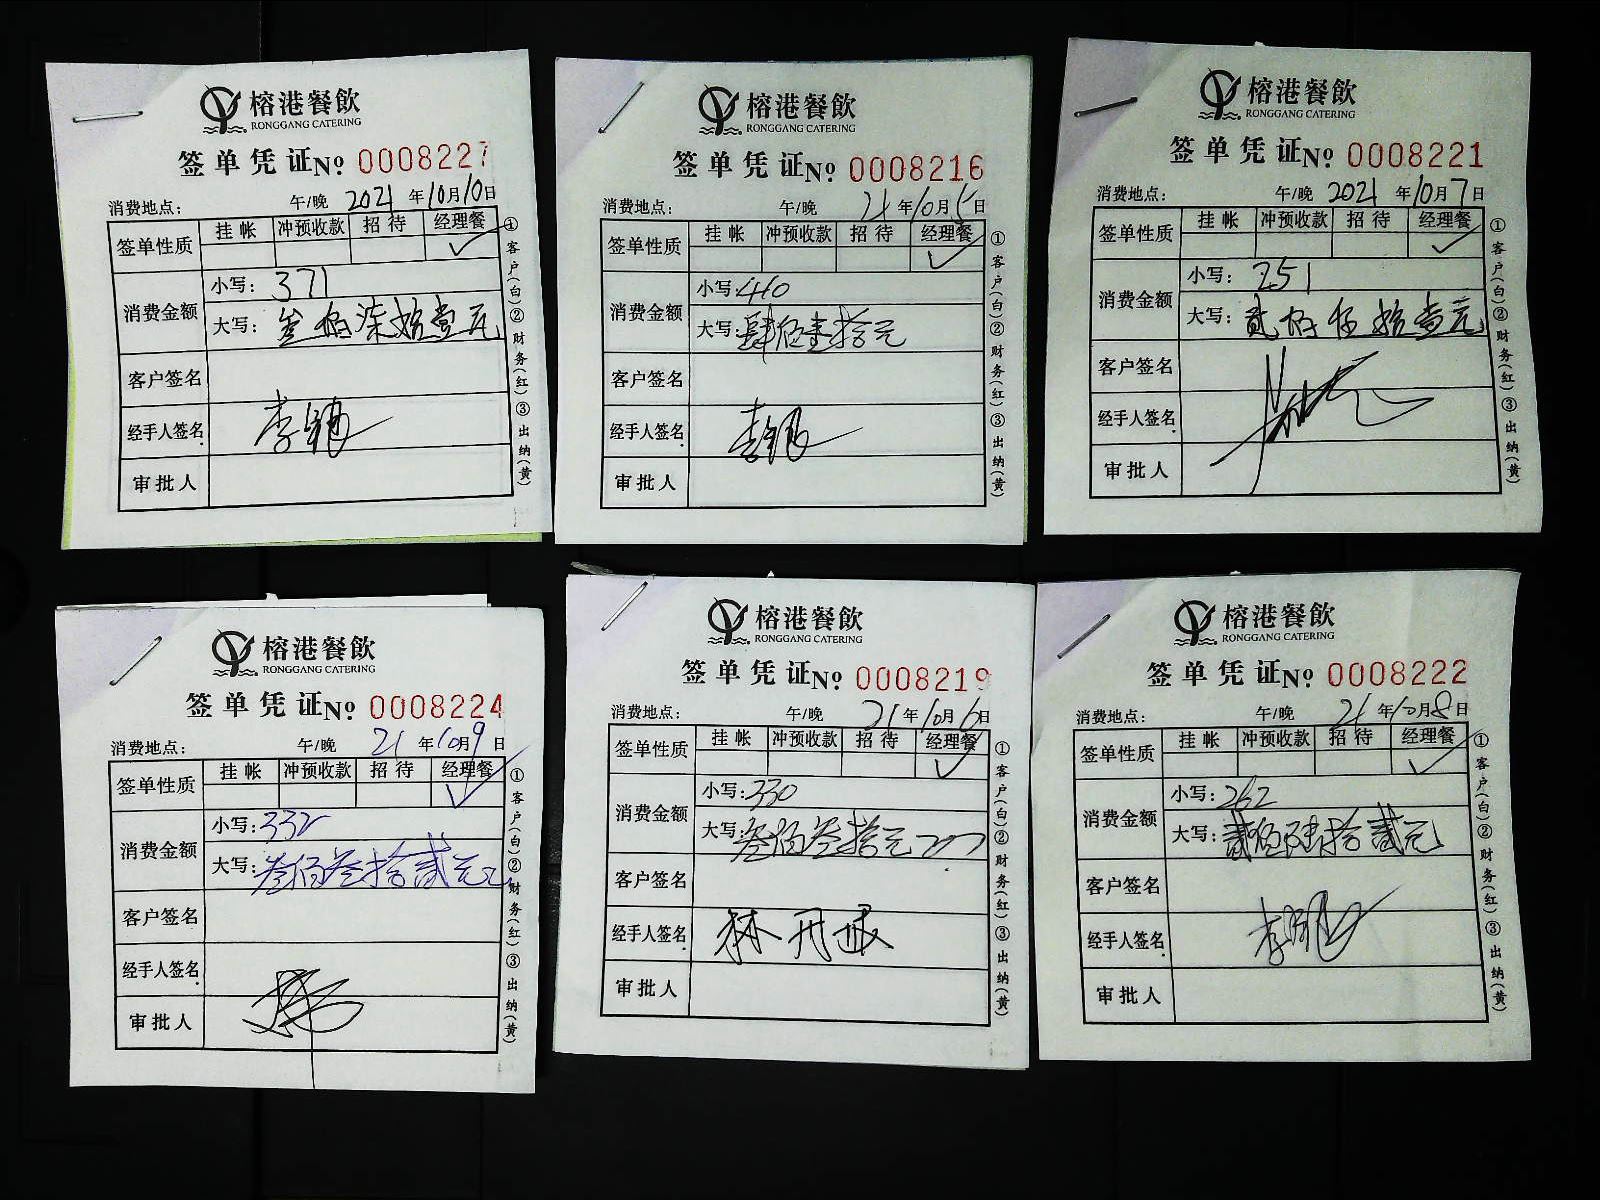 榕港餐飲
RONGGANG CATERING
签单凭证 No 0008227
消费地点： 午/晚 2021 年 10 月 10 日
签单性质 挂帐 冲预收款 招待 经理餐
✓
消费金额 小写：371
大写：叁佰柒拾壹元
客户签名
经手人签名
审批人
①客户(白)②财务(红)③出纳(黄)
榕港餐飲
RONGGANG CATERING
签单凭证 No 0008216
消费地点： 午/晚 21 年 10 月 5 日
签单性质 挂帐 冲预收款 招待 经理餐
✓
消费金额 小写：410
大写：肆佰壹拾元
客户签名
经手人签名
审批人
①客户(白)②财务(红)③出纳(黄)
榕港餐飲
RONGGANG CATERING
签单凭证 No 0008221
消费地点： 午/晚 2021 年 10 月 7 日
签单性质 挂帐 冲预收款 招待 经理餐
✓
消费金额 小写：251
大写：贰佰伍拾壹元
客户签名
经手人签名
审批人
①客户(白)②财务(红)③出纳(黄)
榕港餐飲
RONGGANG CATERING
签单凭证 No 0008224
消费地点： 午/晚 21 年 10 月 9 日
签单性质 挂帐 冲预收款 招待 经理餐
✓
消费金额 小写：332
大写：叁佰叁拾贰元
客户签名
经手人签名
审批人
①客户(白)②财务(红)③出纳(黄)
榕港餐飲
RONGGANG CATERING
签单凭证 No 0008219
消费地点： 午/晚 21 年 10 月 6 日
签单性质 挂帐 冲预收款 招待 经理餐
✓
消费金额 小写：330
大写：叁佰叁拾元
客户签名
经手人签名 林
审批人
①客户(白)②财务(红)③出纳(黄)
榕港餐飲
RONGGANG CATERING
签单凭证 No 0008222
消费地点： 午/晚 21 年 10 月 8 日
签单性质 挂帐 冲预收款 招待 经理餐
✓
消费金额 小写：262
大写：贰佰陆拾贰元
客户签名
经手人签名
审批人
①客户(白)②财务(红)③出纳(黄)